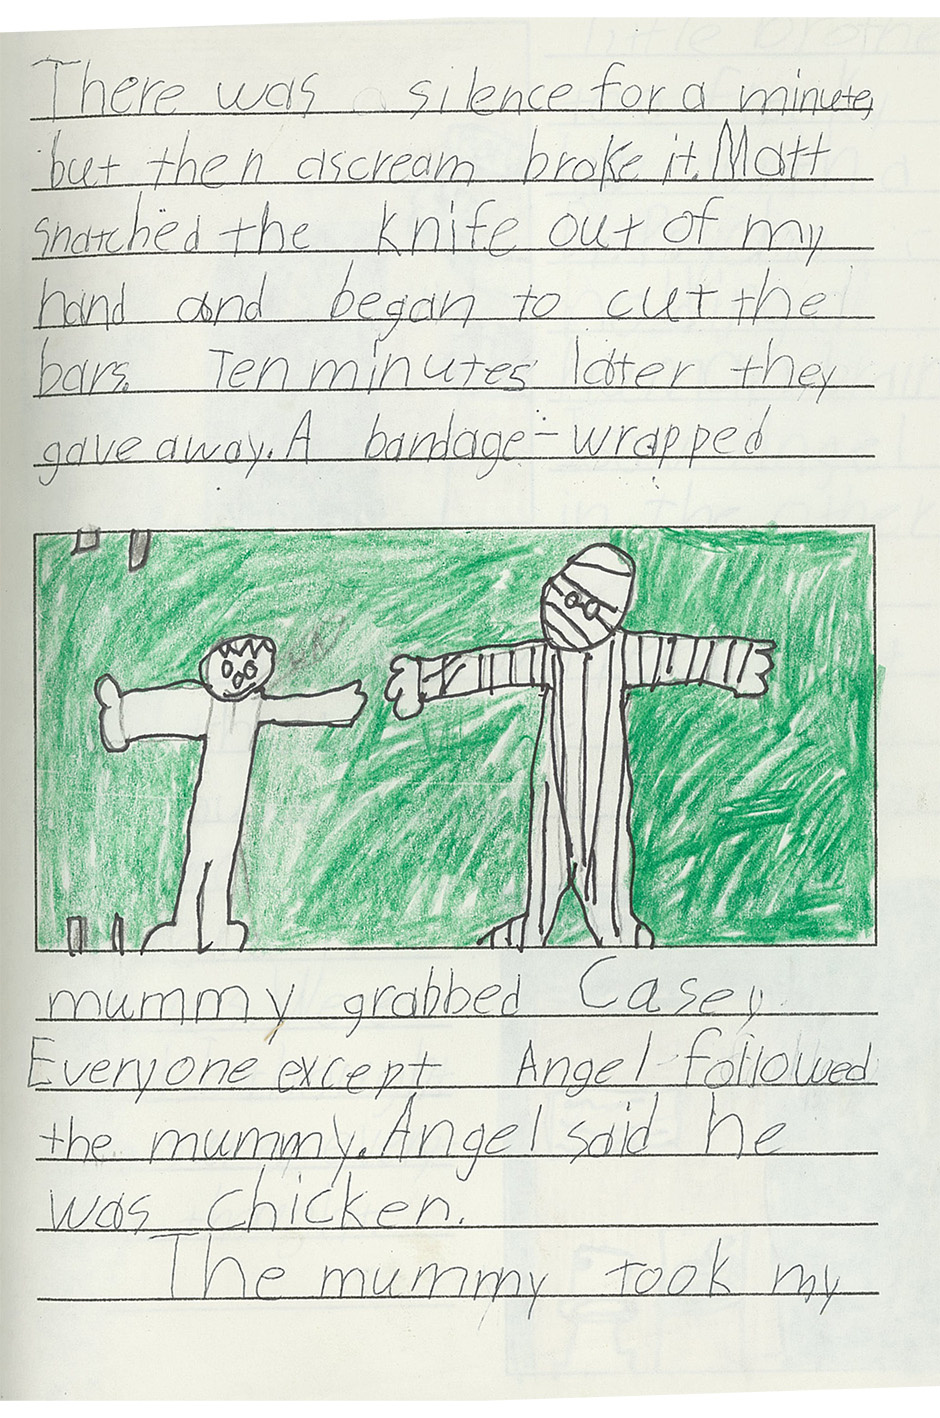 There was silence for a minute,
but then a scream broke it. Matt
snatched the knife out of my
hand and began to cut the
bars. Ten minutes later they
gave away. A bandage-wrapped
mummy grabbed Casey.
Everyone except Angel followed
the mummy. Angel said he
was chicken.
The mummy took my